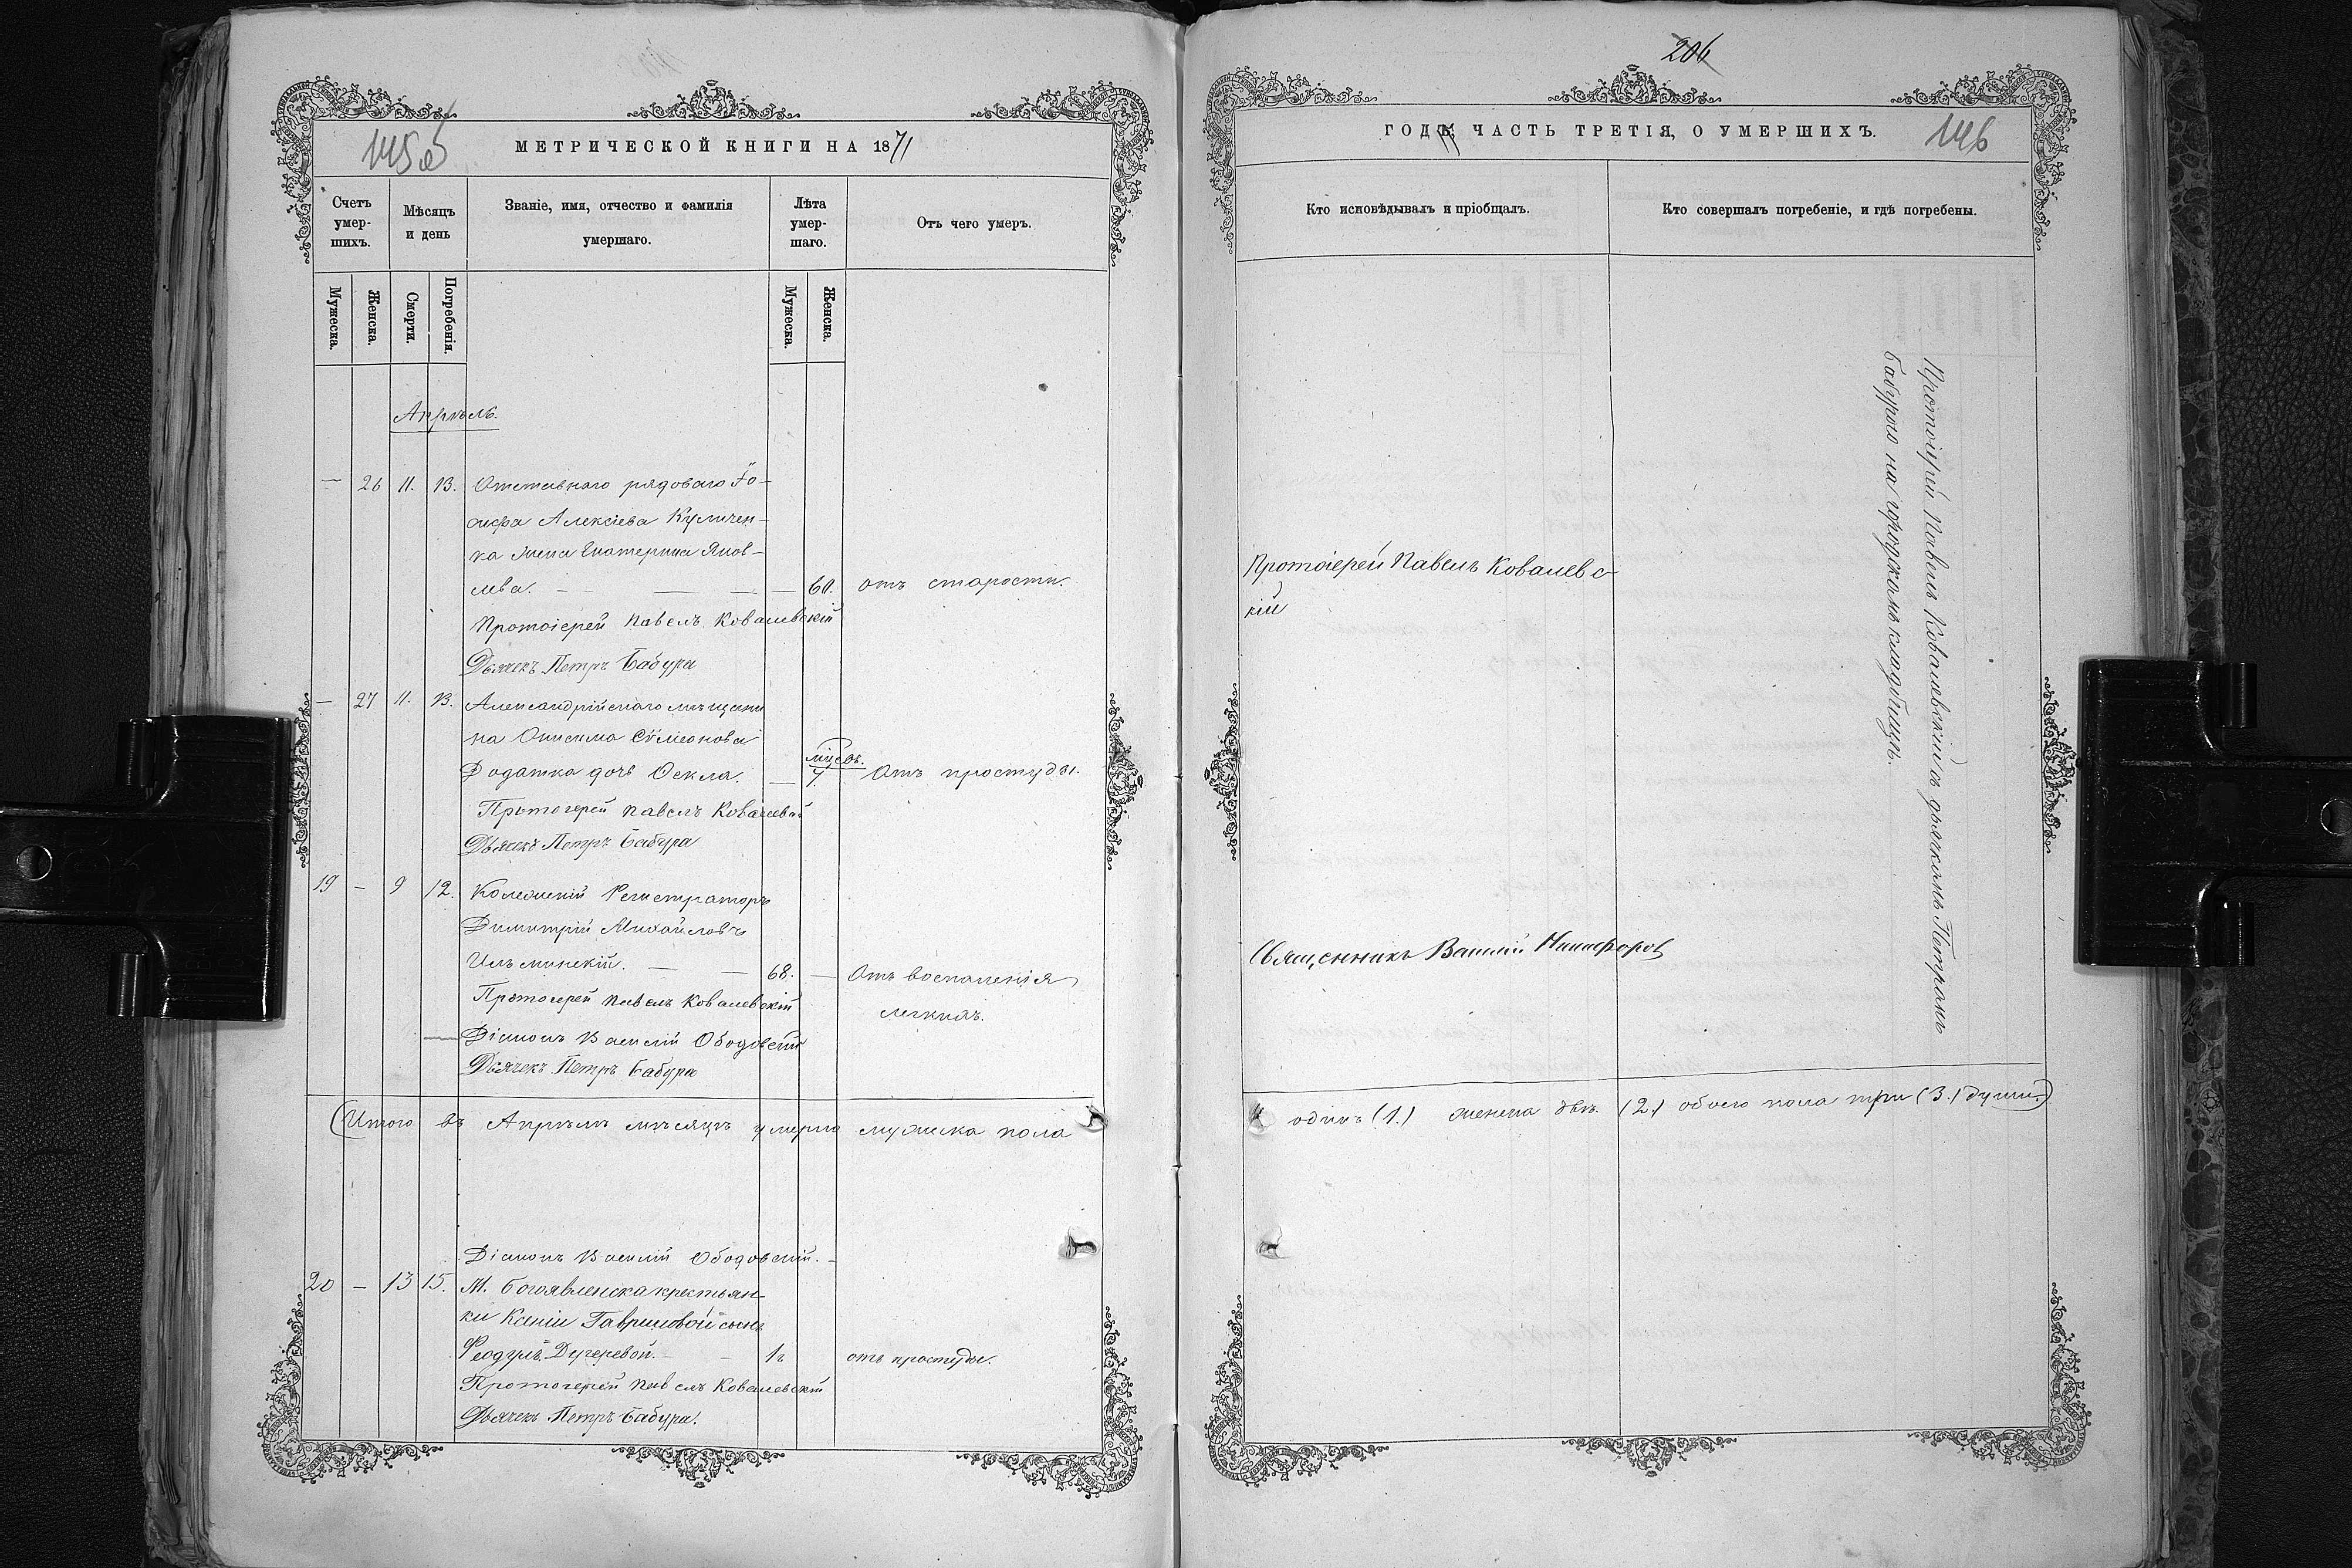 145об
МЕТРИЧЕСКОЙ КНИГИ НА 1871
Счетъ умер-шихъ.
Мѣсяцъ и день
Званіе, имя, отчество и фамилія умершаго.
Лѣта умер-шаго.
Отъ чего умеръ.
Мужеска.
Женска.
Смерти.
Погребенія.
Мужеска.
Женска.
Апрѣль.
— 26 11. 13. Отставнаго рядоваго Іо-
сифа Алексіева Куличен-
ка жена Екатерина Яков-
лева. — — — 60. отъ старости.
Протоіерей Павелъ Ковалевскій
Дьячекъ Петръ Бабура
— 27 11. 13. Александрійскаго мѣщани
на Онисима Сѵмеонова
Додатка дочь Ѳекла. — мѣсяц. 7. Отъ простуды.
Протоіерей Павелъ Ковалевскій
Дьячекъ Петръ Бабура
19 — 9 12. Колежскій Регистраторъ
Димитрій Михайловъ
Ильминскій. — — 68. — Отъ воспаленія
легкихъ.
Протоіерей Павелъ Ковалевскій
Діаконъ Василій Ободовскій
Дьячекъ Петръ Бабура
(Итого въ Апрѣлѣ мѣсяцѣ умерло мужеска пола
Діаконъ Василій Ободовскій.
20 — 13 15. М. Богоявленска крестьян-
ки Ксеніи Гавриловой сынъ
Феодулъ Дегеревой. — — 1г отъ простуды.
Протоіерей Павелъ Ковалевскій
Дьячекъ Петръ Бабура.
206
ГОДЪ, ЧАСТЬ ТРЕТІЯ, О УМЕРШИХЪ.
146
Кто исповѣдывалъ и пріобщалъ.
Кто совершалъ погребеніе, и гдѣ погребены.
Протоіерей Павелъ Ковалевс-
кій
Священникъ Василій Никифоров
Протоіерей Павелъ Ковалевскій съ дьячкомъ Петромъ
Бабурою на городскомъ кладбищѣ.
одинъ (1.) женска двѣ (2.) обоего пола три (3.) души.)